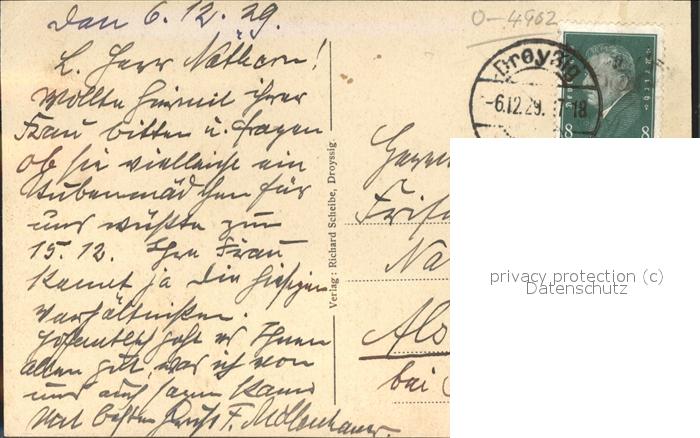 Den 6.12.29.
L. Herr Nathorn!
Wollte hiermit ihrer
Frau bitten u. fragen
ob sie vielleicht ein
Stubenmädchen für
uns wüßte zum
15.12. Ihre Frau
kennt ja die hiesigen
Verhältnisse.
Hoffentlich geht es Ihnen
allen gut, was ich von
uns auch sagen kann
Mit besten Gruß F.
Verlag: Richard Scheibe, Droyssig
0-4962
Droyßig
-6.12.29. 17-18
8 8
Herrn
Na
Als
bei
privacy protection (c)
Datenschutz